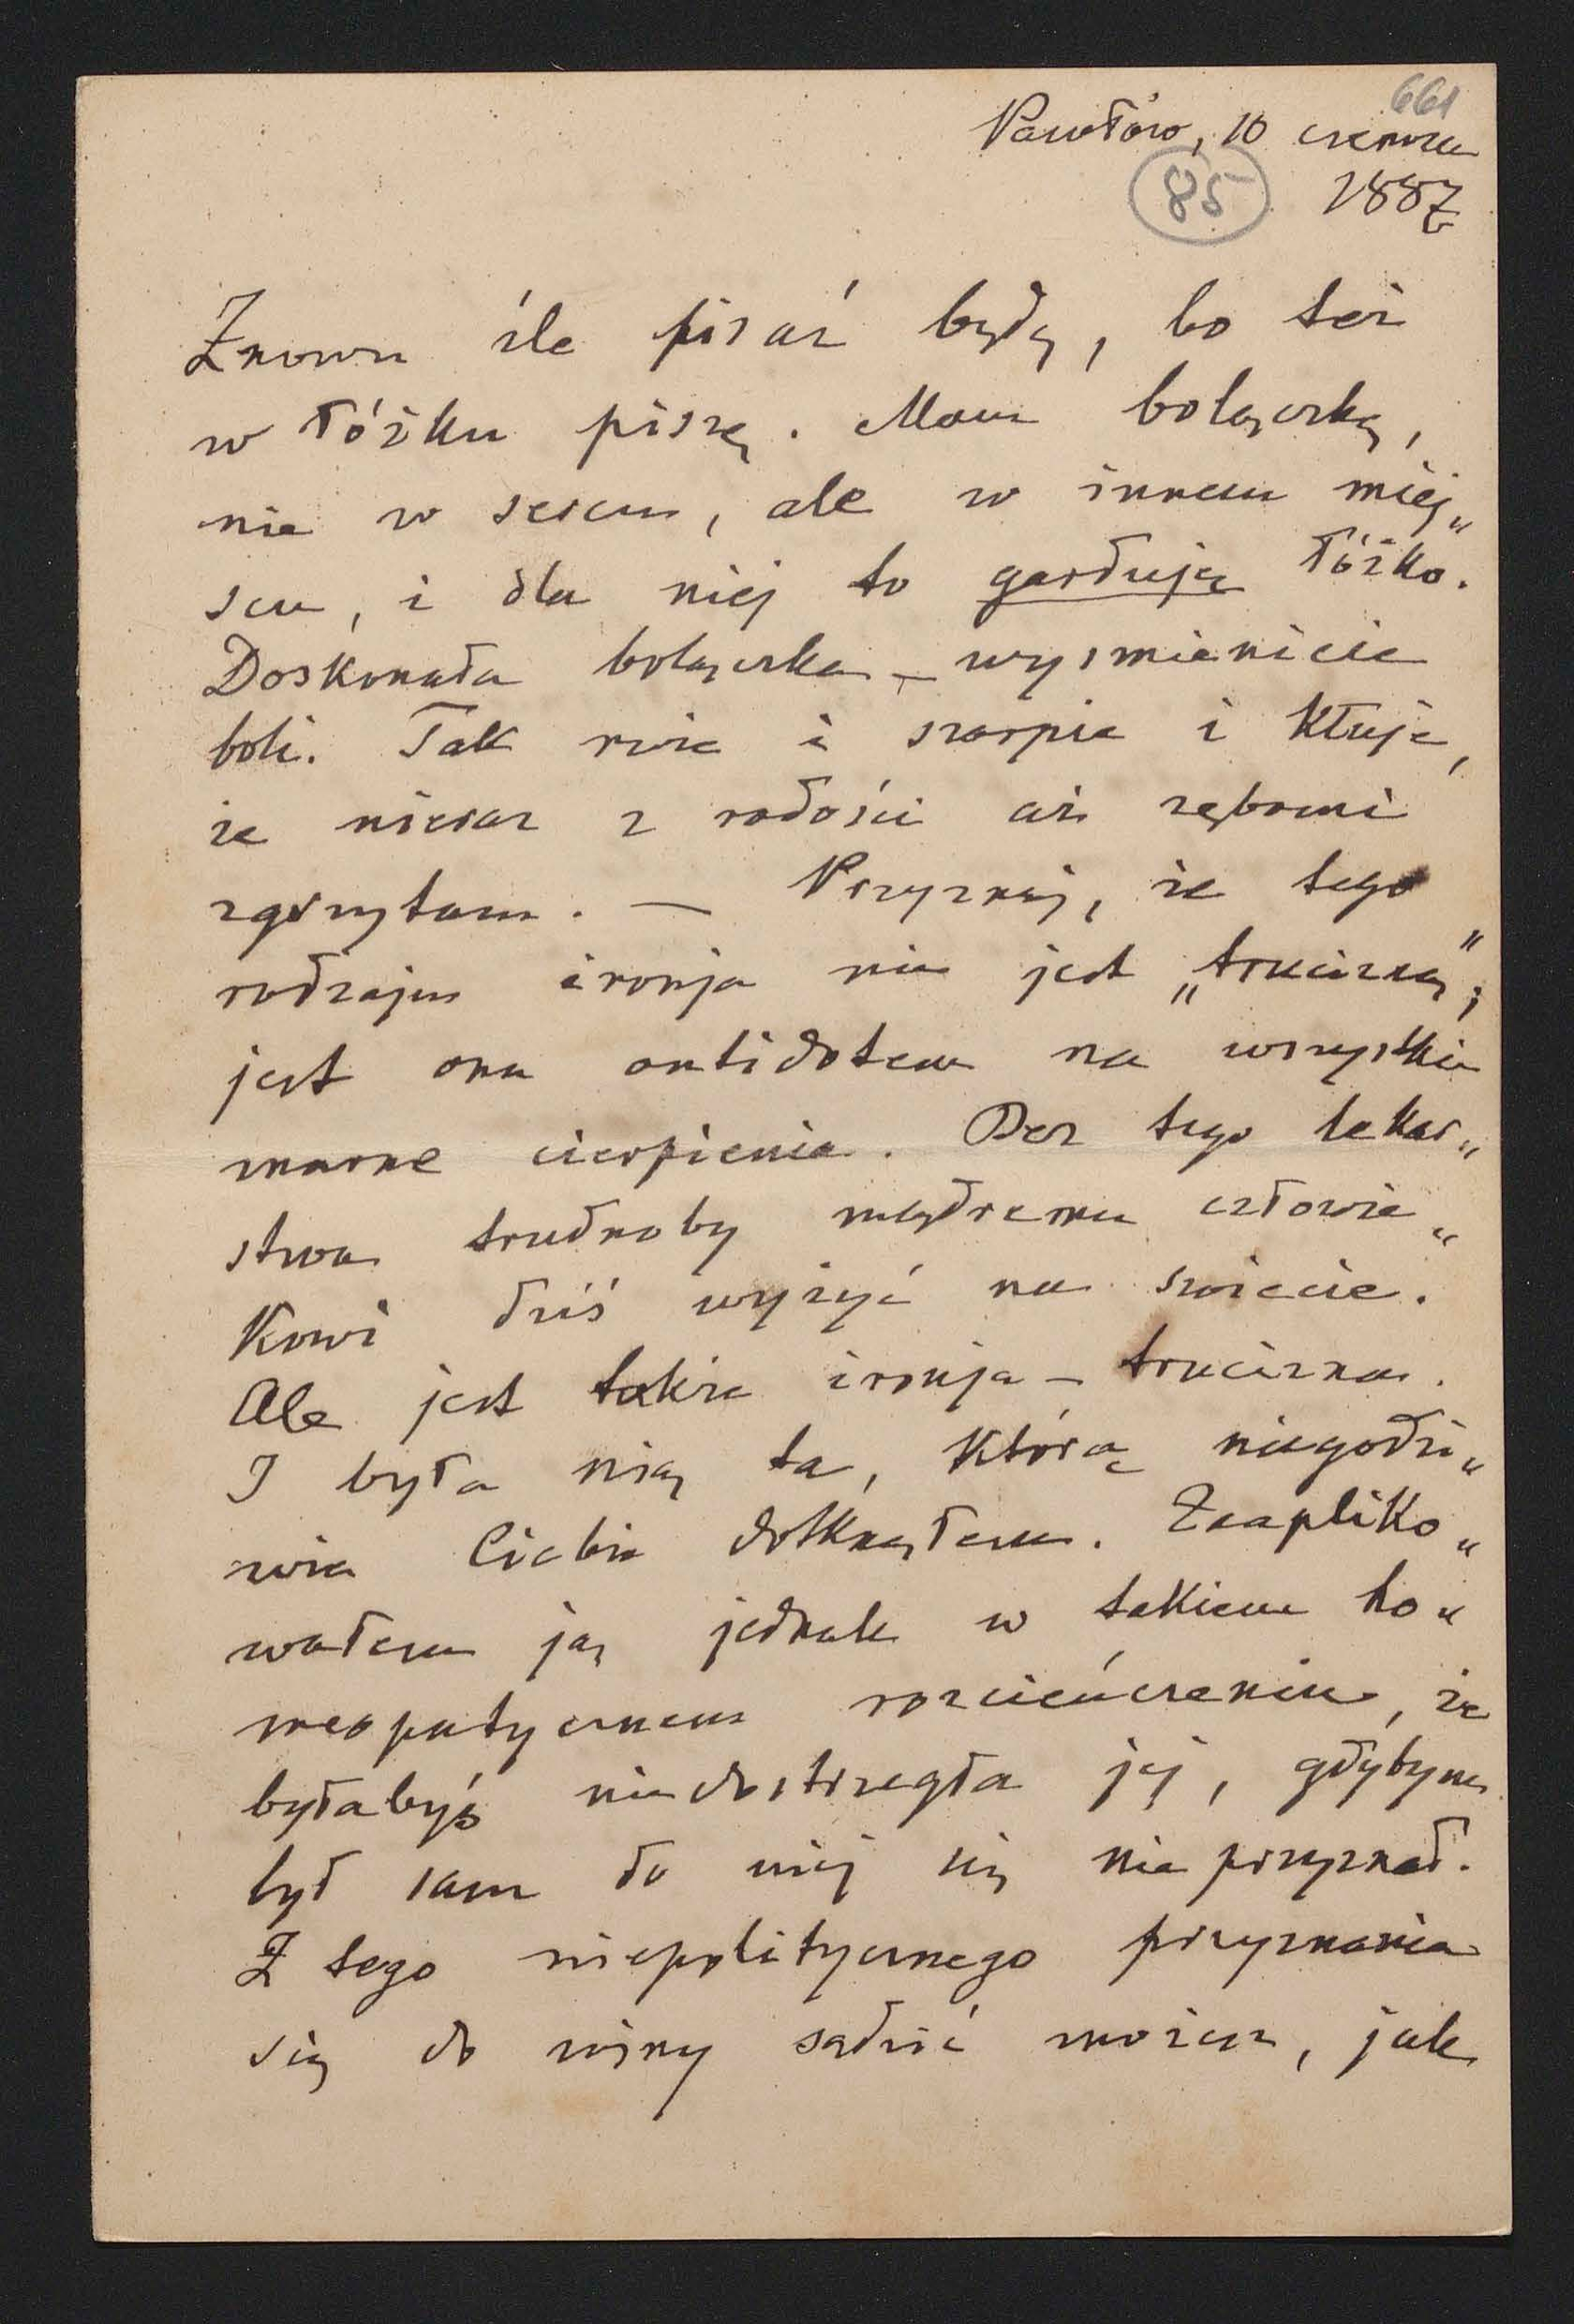 661
Pawłów, 10 czerwca
85 1887
Znowu źle pisać będę, bo też
w łóżku piszę. Mam bolączkę,
nie w sercu, ale w innem miej„
scu, i dla niej to garduję łóżko.
Doskonała bolączka – wyśmienicie
boli. Tak rwie i szarpie i kłuje,
że nieraz z radości aż zębami
zgrzytam. — Przyznaj, że tego
rodzaju ironja nie jest „trucizną";
jest ona antidotem na wszystkie
marne cierpienia. Bez tego lekar„
stwa trudnoby mądremu człowie„
kowi dziś wyżyć na świecie.
Ale jest także ironja – trucizna.
I była nią ta, którą niegodzi„
wie Ciebie dotknąłem. Zapliko„
wałem ją jednak w takiem ho„
meopatycznem rozcieńczeniu, że
byłabyś niedostrzegła jej, gdybym
był sam do niej się nie przyznał.
Z tego niepolitycznego przyznania
się do winy sądzić możesz, jak